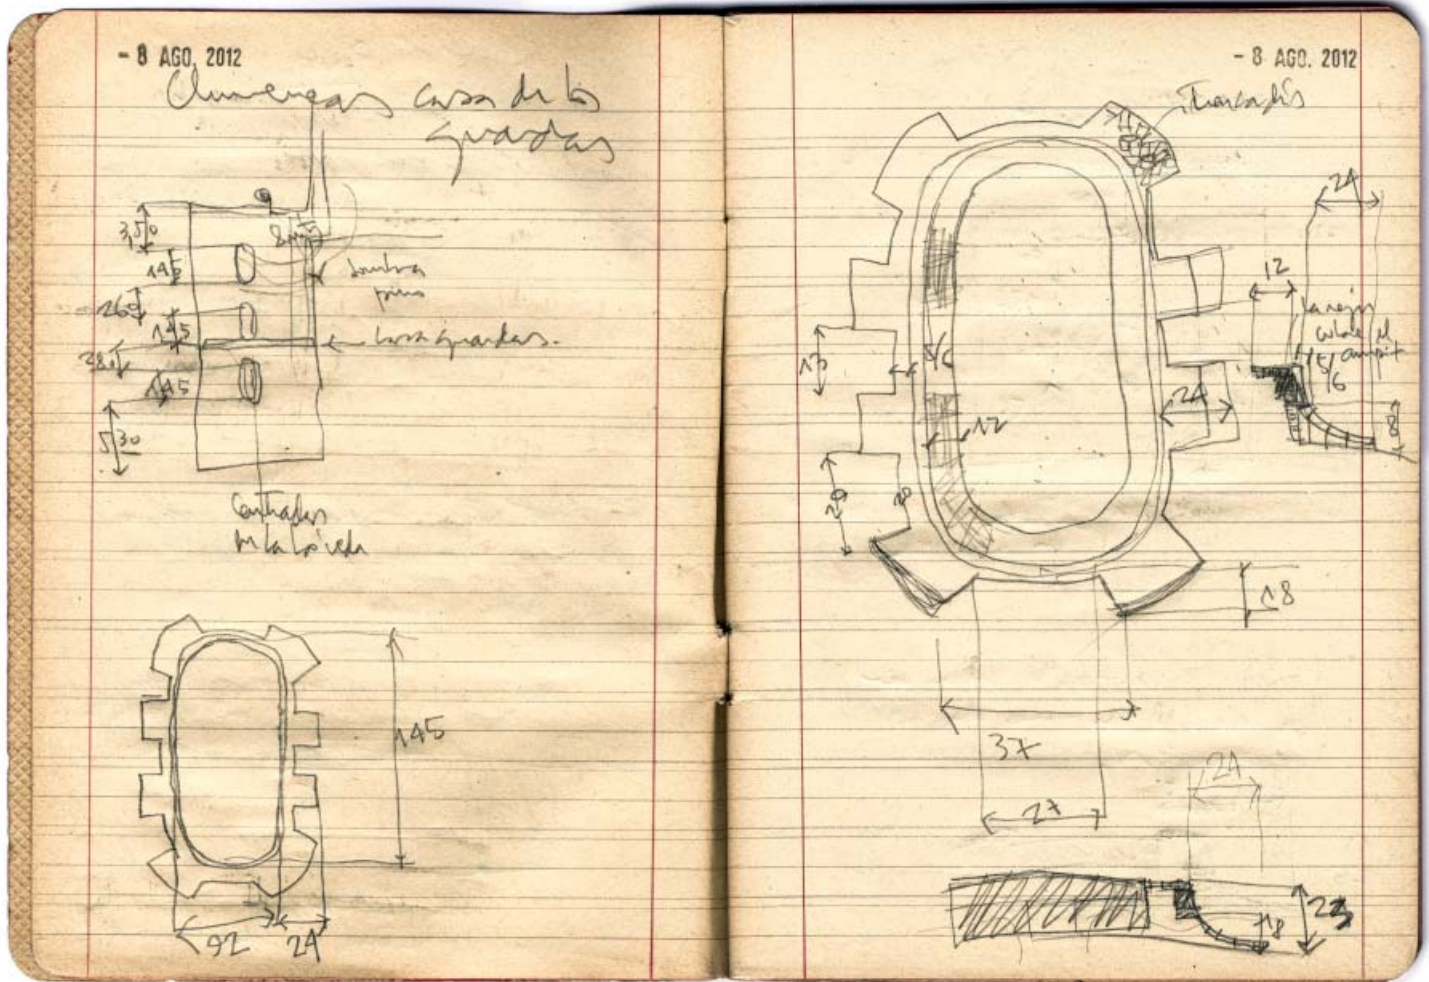 - 8 AGO. 2012
Chimeneas casa de los
guardas
3,50
145
260
145
280
145
5,30
sombra
casa guardas.
centradas
en la bóveda
145
92
24
- 8 AGO. 2012
24
12
la reja
cubre el
5/6
8
13
5/6
24
12
29
18
37
27
24
18
23